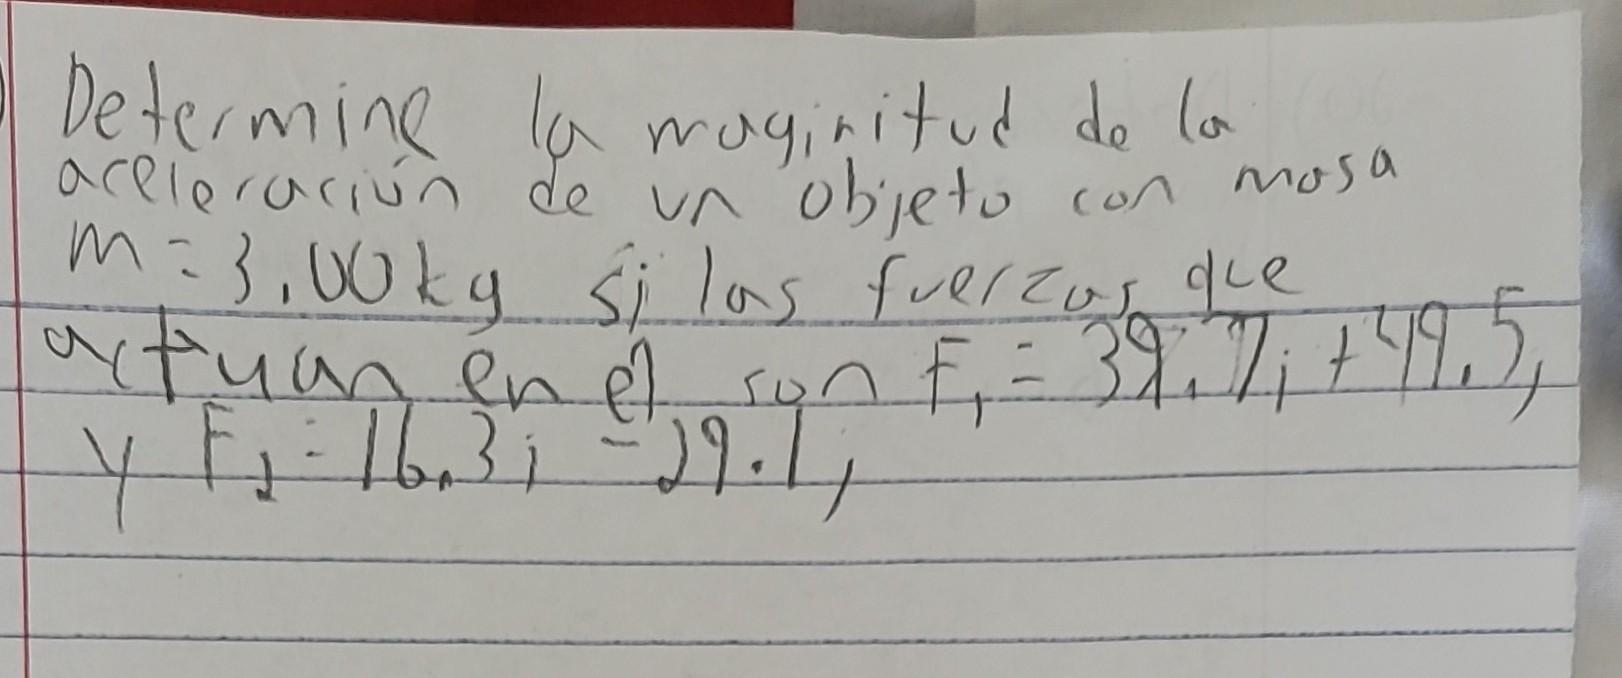 Determine la maginitud de la
aceleración de un objeto con masa
m = 3.00 kg si las fuerzas que
actuan en el son F₁ = 39.7i + 49.5j
y F₂ = 16.3i - 29.1j